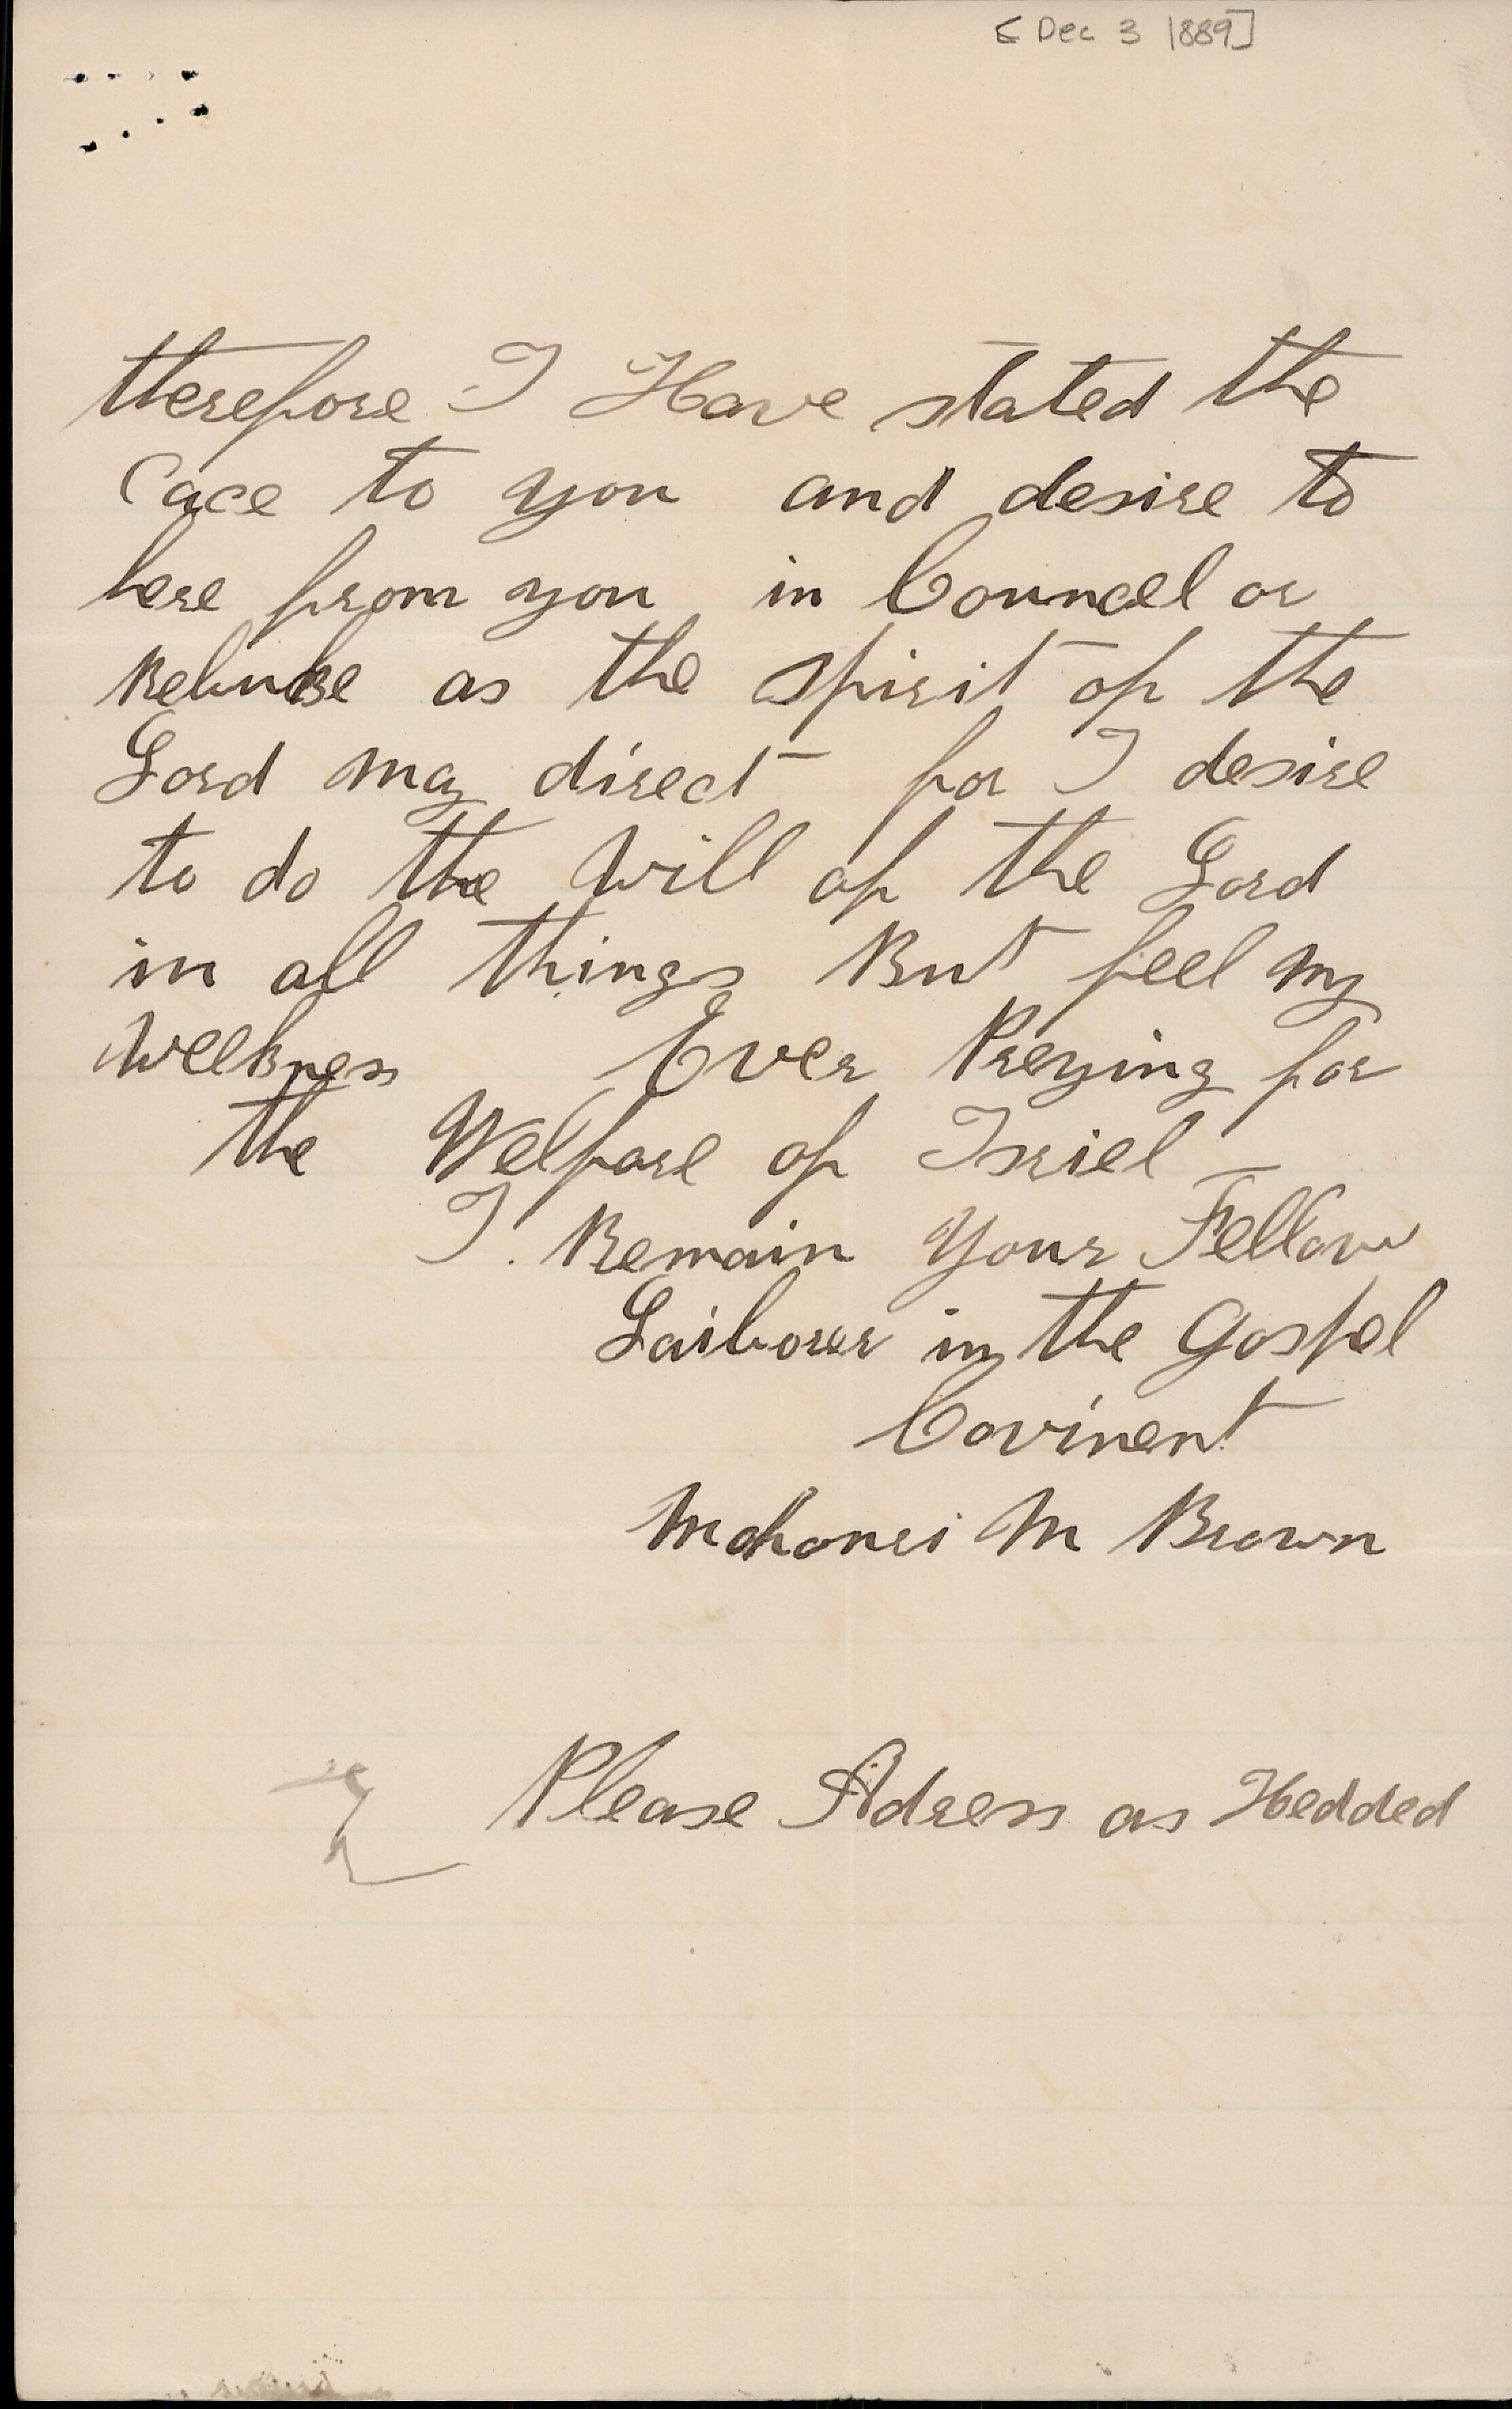 [Dec 3 1889]
therefore I Have stated the
Cace to you and desire to
here from you in Councel or
Rebuke as the Spirit of the
Lord may direct for I desire
to do the Will of the Lord
in all things But feel my
Weekness Ever Preying for
the Welfare of Isriel
I. Remain Your Fellow
Laiborer in the Gospel
Covinent
Mahonri M Brown
Please Adress as Hedded